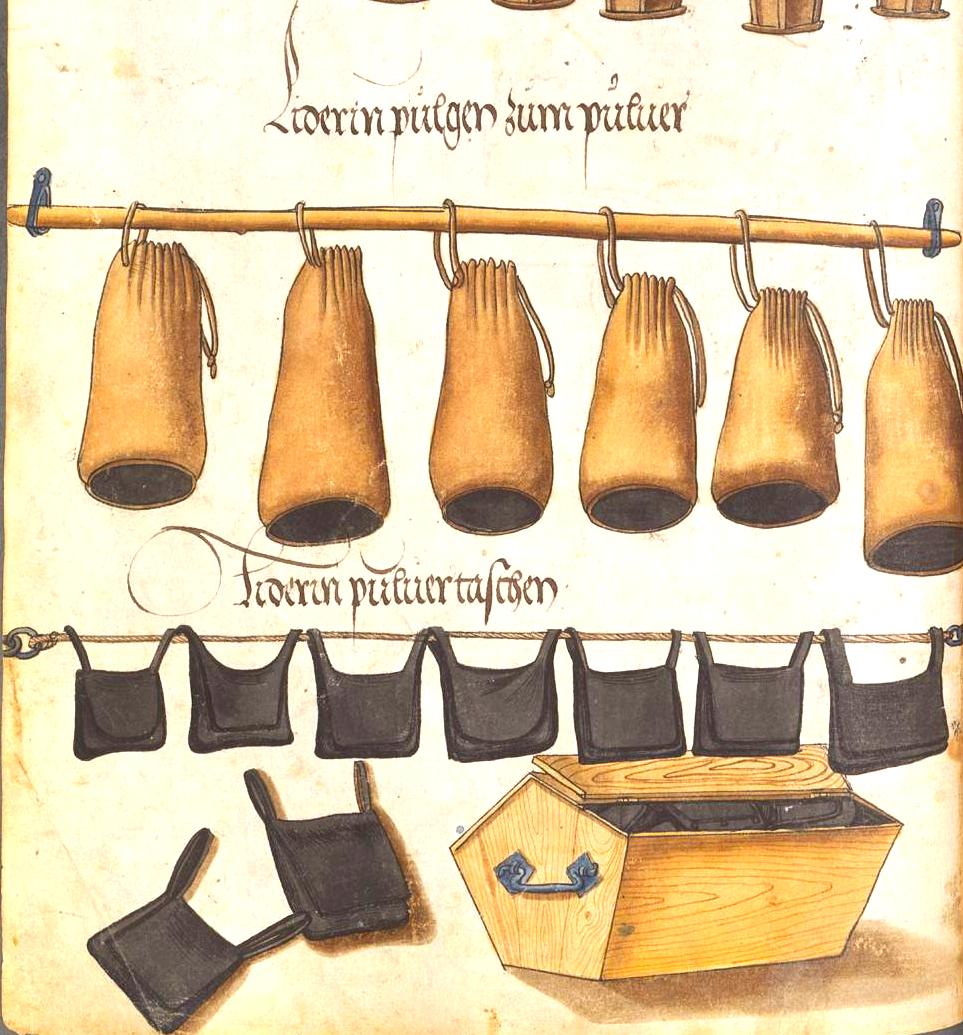 Liderin pulgen zum půluer
Liderin pulluer taschen